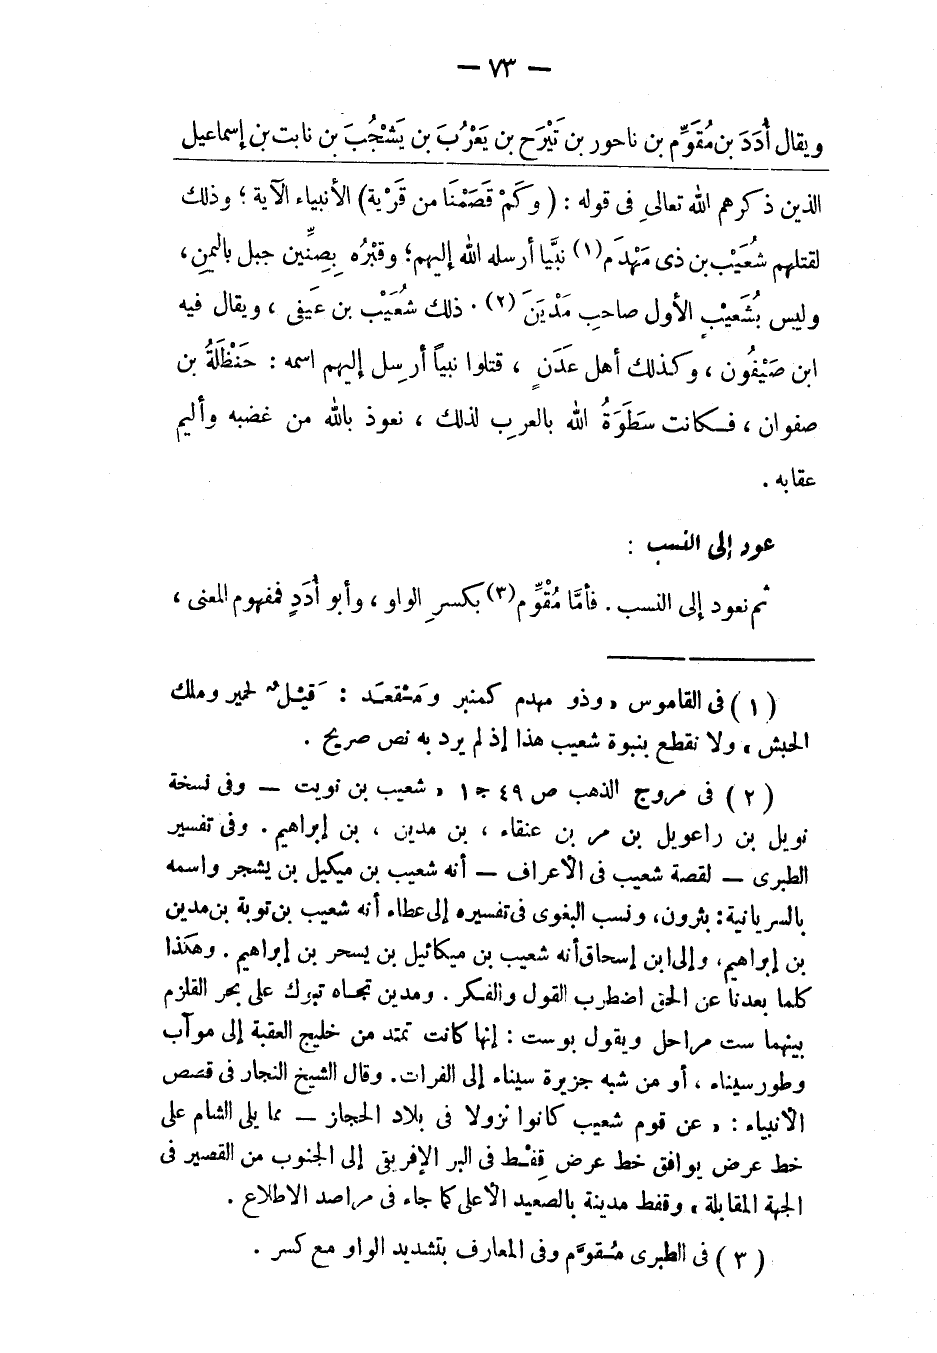 — ٧٣ —
ويقال أُدَدَ بن مُقَوِّم بن ناحور بن تَيْرَح بن يَعْرُبَ بن يَشْجُبَ بن نابت بن إسماعيل
الذين ذكرهم الله تعالى فى قوله : ( وكَمْ قَصَمْنَا من قَرْية) الأنبياء الآية ؛ وذلك
لقتلهم شُعَيْب بن ذى مَهْدَم(١) نبَّيا أرسله الله إليهم؛ وقبْرُه بِصِنِّين جبل باليمنِ ،
وليس بشُعَيْبٍ الأول صاحبِ مَدْيَنَ (٢) . ذلك شُعَيْب بن عَيفى ، ويقال فيه
ابن صَيْفُون ، وكذلك أهل عَدَنٍ ، قتلوا نبياً أرسل إليهم اسمه : حَنْظَلَةُ بن
صفوان ، فكانت سَطَوَةُ الله بالعربِ لذلك ، نعوذ بالله من غضبه وأليم
عقابه .
عود إلى النسب :
ثم نعود إلى النسب . فأمَّا مُقْوِّم(٣) بكسرِ الواو ، وأبو أُدَدٍ فمفهوم المعنى ،
( ١ ) فى القاموس « وذو مهدم كمنبر ومَقعَد : قَيْل لحمير وملك
الحبش » ولا نقطع بنبوة شعيب هذا إذ لم يرد به نص صريح .
( ٢ ) فى مروج الذهب ص ٤٩ ج ١ « شعيب بن نويت — وفى نسخة
نويل بن راعويل بن مر بن عنقاء ، بن مدين ، بن إبراهيم . وفى تفسير
الطبرى — لقصة شعيب فى الأعراف — أنه شعيب بن ميكيل بن يشجر واسمه
بالسريانية : بثرون، ونسب البغوى فى تفسيره إلى عطاء أنه شعيب بن توبة بن مدين
بن إبراهيم، وإلى ابن إسحاق أنه شعيب بن ميكائيل بن يسحر بن إبراهيم . وهكذا
كلما بعدنا عن الحق اضطرب القول والفكر . ومدين تجاه تبرك على بحر القلزم
بينهما ست مراحل ويقول بوست : إنها كانت تمتد من خليج العقبة إلى موآب
وطور سيناء ، أو من شبه جزيرة سيناء إلى الفرات. وقال الشيخ النجار فى قصص
الأنبياء : « عن قوم شعيب كانوا نزولا فى بلاد الحجاز — مما يلى الشام على
خط عرض يوافق خط عرض قِفْط فى البر الإفريقى إلى الجنوب من القصير فى
الجهة المقابلة » وقفط مدينة بالصعيد الأعلى كما جاء فى مراصد الاطلاع .
( ٣ ) فى الطبرى مُقوَّم وفى المعارف بتشديد الواو مع كسر .